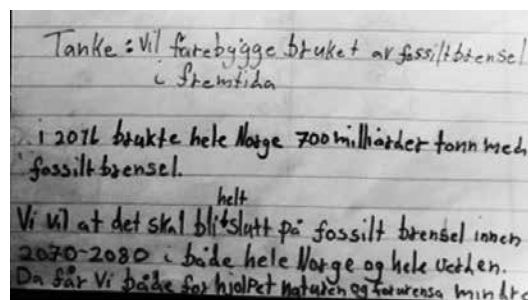 Tanke: Vil førebygge bruket av fossilt brensel
i fremtida
i 2016 brukte hele Norge 700 milliarder tonn med
fossilt brensel.
helt
Vi vil at det skal bli slutt på fossilt brensel innen
2070-2080 i både hele Norge og hele verden.
Da får Vi både for hjolpet naturen og forurensa mindre